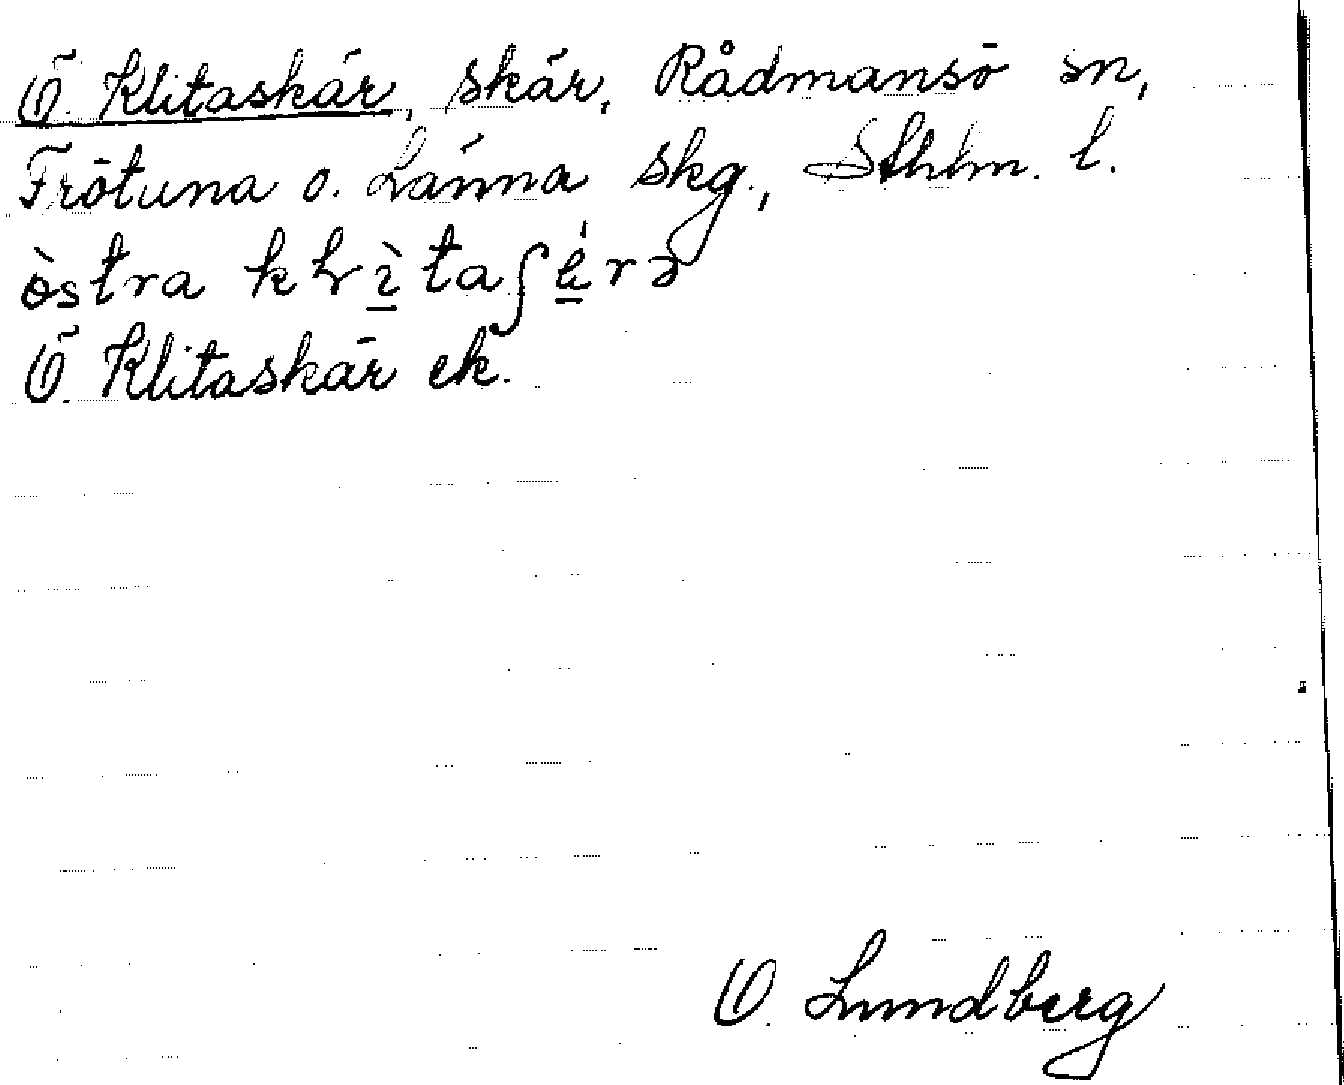 Ö. Klitaskär, skär, Rådmansö sn,
Frötuna o. Länna skg., Sthlm. l.
östra
Ö. Klitaskär ek.
O. Lundberg